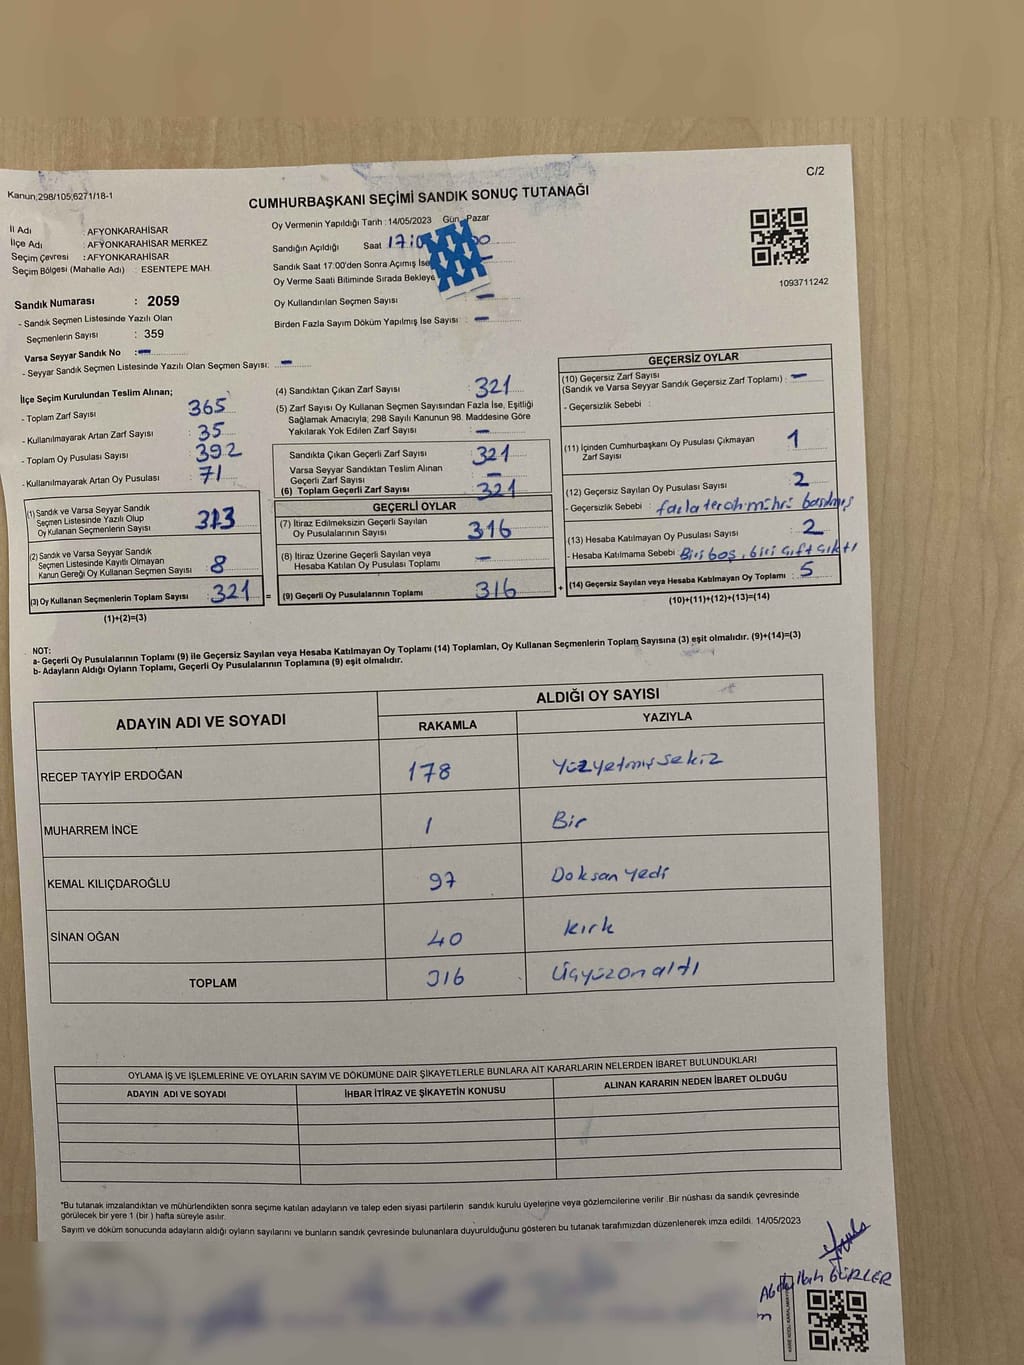 C/2
Kanun;298/105;6271/18-1
CUMHURBAŞKANI SEÇİMİ SANDIK SONUÇ TUTANAĞI
İl Adı : AFYONKARAHİSAR
İlçe Adı : AFYONKARAHİSAR MERKEZ
Seçim Çevresi : AFYONKARAHİSAR
Seçim Bölgesi (Mahalle Adı) : ESENTEPE MAH.
Oy Vermenin Yapıldığı Tarih : 14/05/2023 Gün Pazar
Sandığın Açıldığı Saat
Sandık Saat 17:00'den Sonra Açımış İse
Oy Verme Saati Bitiminde Sırada Bekleye
Oy Kullandırılan Seçmen Sayısı –
Birden Fazla Sayım Döküm Yapılmış İse Sayısı : –
1093711242
Sandık Numarası : 2059
- Sandık Seçmen Listesinde Yazılı Olan
Seçmenlerin Sayısı : 359
Varsa Seyyar Sandık No : –
- Seyyar Sandık Seçmen Listesinde Yazılı Olan Seçmen Sayısı: –
İlçe Seçim Kurulundan Teslim Alınan;
- Toplam Zarf Sayısı : 365
- Kullanılmayarak Artan Zarf Sayısı : 35
- Toplam Oy Pusulası Sayısı : 392
- Kullanılmayarak Artan Oy Pusulası : 71
(1) Sandık ve Varsa Seyyar Sandık
Seçmen Listesinde Yazılı Olup
Oy Kullanan Seçmenlerin Sayısı : 313
(2) Sandık ve Varsa Seyyar Sandık
Seçmen Listesinde Kayıtlı Olmayan
Kanun Gereği Oy Kullanan Seçmen Sayısı : 8
(3) Oy Kullanan Seçmenlerin Toplam Sayısı : 321 =
(1)+(2)=(3)
(4) Sandıktan Çıkan Zarf Sayısı : 321
(5) Zarf Sayısı Oy Kullanan Seçmen Sayısından Fazla İse, Eşitliği
Sağlamak Amacıyla; 298 Sayılı Kanunun 98. Maddesine Göre
Yakılarak Yok Edilen Zarf Sayısı : –
Sandıkta Çıkan Geçerli Zarf Sayısı : 321
Varsa Seyyar Sandıktan Teslim Alınan
Geçerli Zarf Sayısı : –
(6) Toplam Geçerli Zarf Sayısı : 321
GEÇERLİ OYLAR
(7) İtiraz Edilmeksizin Geçerli Sayılan
Oy Pusulalarının Sayısı : 316
(8) İtiraz Üzerine Geçerli Sayılan veya
Hesaba Katılan Oy Pusulası Toplamı : –
(9) Geçerli Oy Pusulalarının Toplamı : 316 +
GEÇERSİZ OYLAR
(10) Geçersiz Zarf Sayısı
(Sandık ve Varsa Seyyar Sandık Geçersiz Zarf Toplamı) : –
- Geçersizlik Sebebi :
(11) İçinden Cumhurbaşkanı Oy Pusulası Çıkmayan
Zarf Sayısı : 1
(12) Geçersiz Sayılan Oy Pusulası Sayısı : 2
- Geçersizlik Sebebi : fazla tercih mührü basılmış
(13) Hesaba Katılmayan Oy Pusulası Sayısı : 2
- Hesaba Katılmama Sebebi : Biri boş, biri çift çıktı
(14) Geçersiz Sayılan veya Hesaba Katılmayan Oy Toplamı : 5
(10)+(11)+(12)+(13)=(14)
NOT:
a- Geçerli Oy Pusulalarının Toplamı (9) ile Geçersiz Sayılan veya Hesaba Katılmayan Oy Toplamı (14) Toplamları, Oy Kullanan Seçmenlerin Toplam Sayısına (3) eşit olmalıdır. (9)+(14)=(3)
b- Adayların Aldığı Oyların Toplamı, Geçerli Oy Pusulalarının Toplamına (9) eşit olmalıdır.
ADAYIN ADI VE SOYADI ALDIĞI OY SAYISI
RAKAMLA YAZIYLA
RECEP TAYYİP ERDOĞAN 178 Yüzyetmişsekiz
MUHARREM İNCE 1 Bir
KEMAL KILIÇDAROĞLU 97 Doksan yedi
SİNAN OĞAN 40 kırk
TOPLAM 316 Üçyüzonaltı
OYLAMA İŞ VE İŞLEMLERİNE VE OYLARIN SAYIM VE DÖKÜMÜNE DAİR ŞİKAYETLERLE BUNLARA AİT KARARLARIN NELERDEN İBARET BULUNDUKLARI
ADAYIN ADI VE SOYADI İHBAR İTİRAZ VE ŞİKAYETİN KONUSU ALINAN KARARIN NEDEN İBARET OLDUĞU
*Bu tutanak imzalandıktan ve mühürlendikten sonra seçime katılan adayların ve talep eden siyasi partilerin sandık kurulu üyelerine veya gözlemcilerine verilir .Bir nüshası da sandık çevresinde
görülecek bir yere 1 (bir ) hafta süreyle asılır.
Sayım ve döküm sonucunda adayların aldığı oyların sayılarını ve bunların sandık çevresinde bulunanlara duyurulduğunu gösteren bu tutanak tarafımızdan düzenlenerek imza edildi. 14/05/2023
GÜRLER